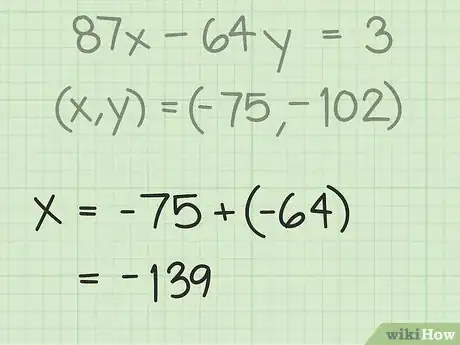 87x - 64y = 3
(x,y) = (-75, -102)
x = -75 + (-64)
= -139
wikiHow